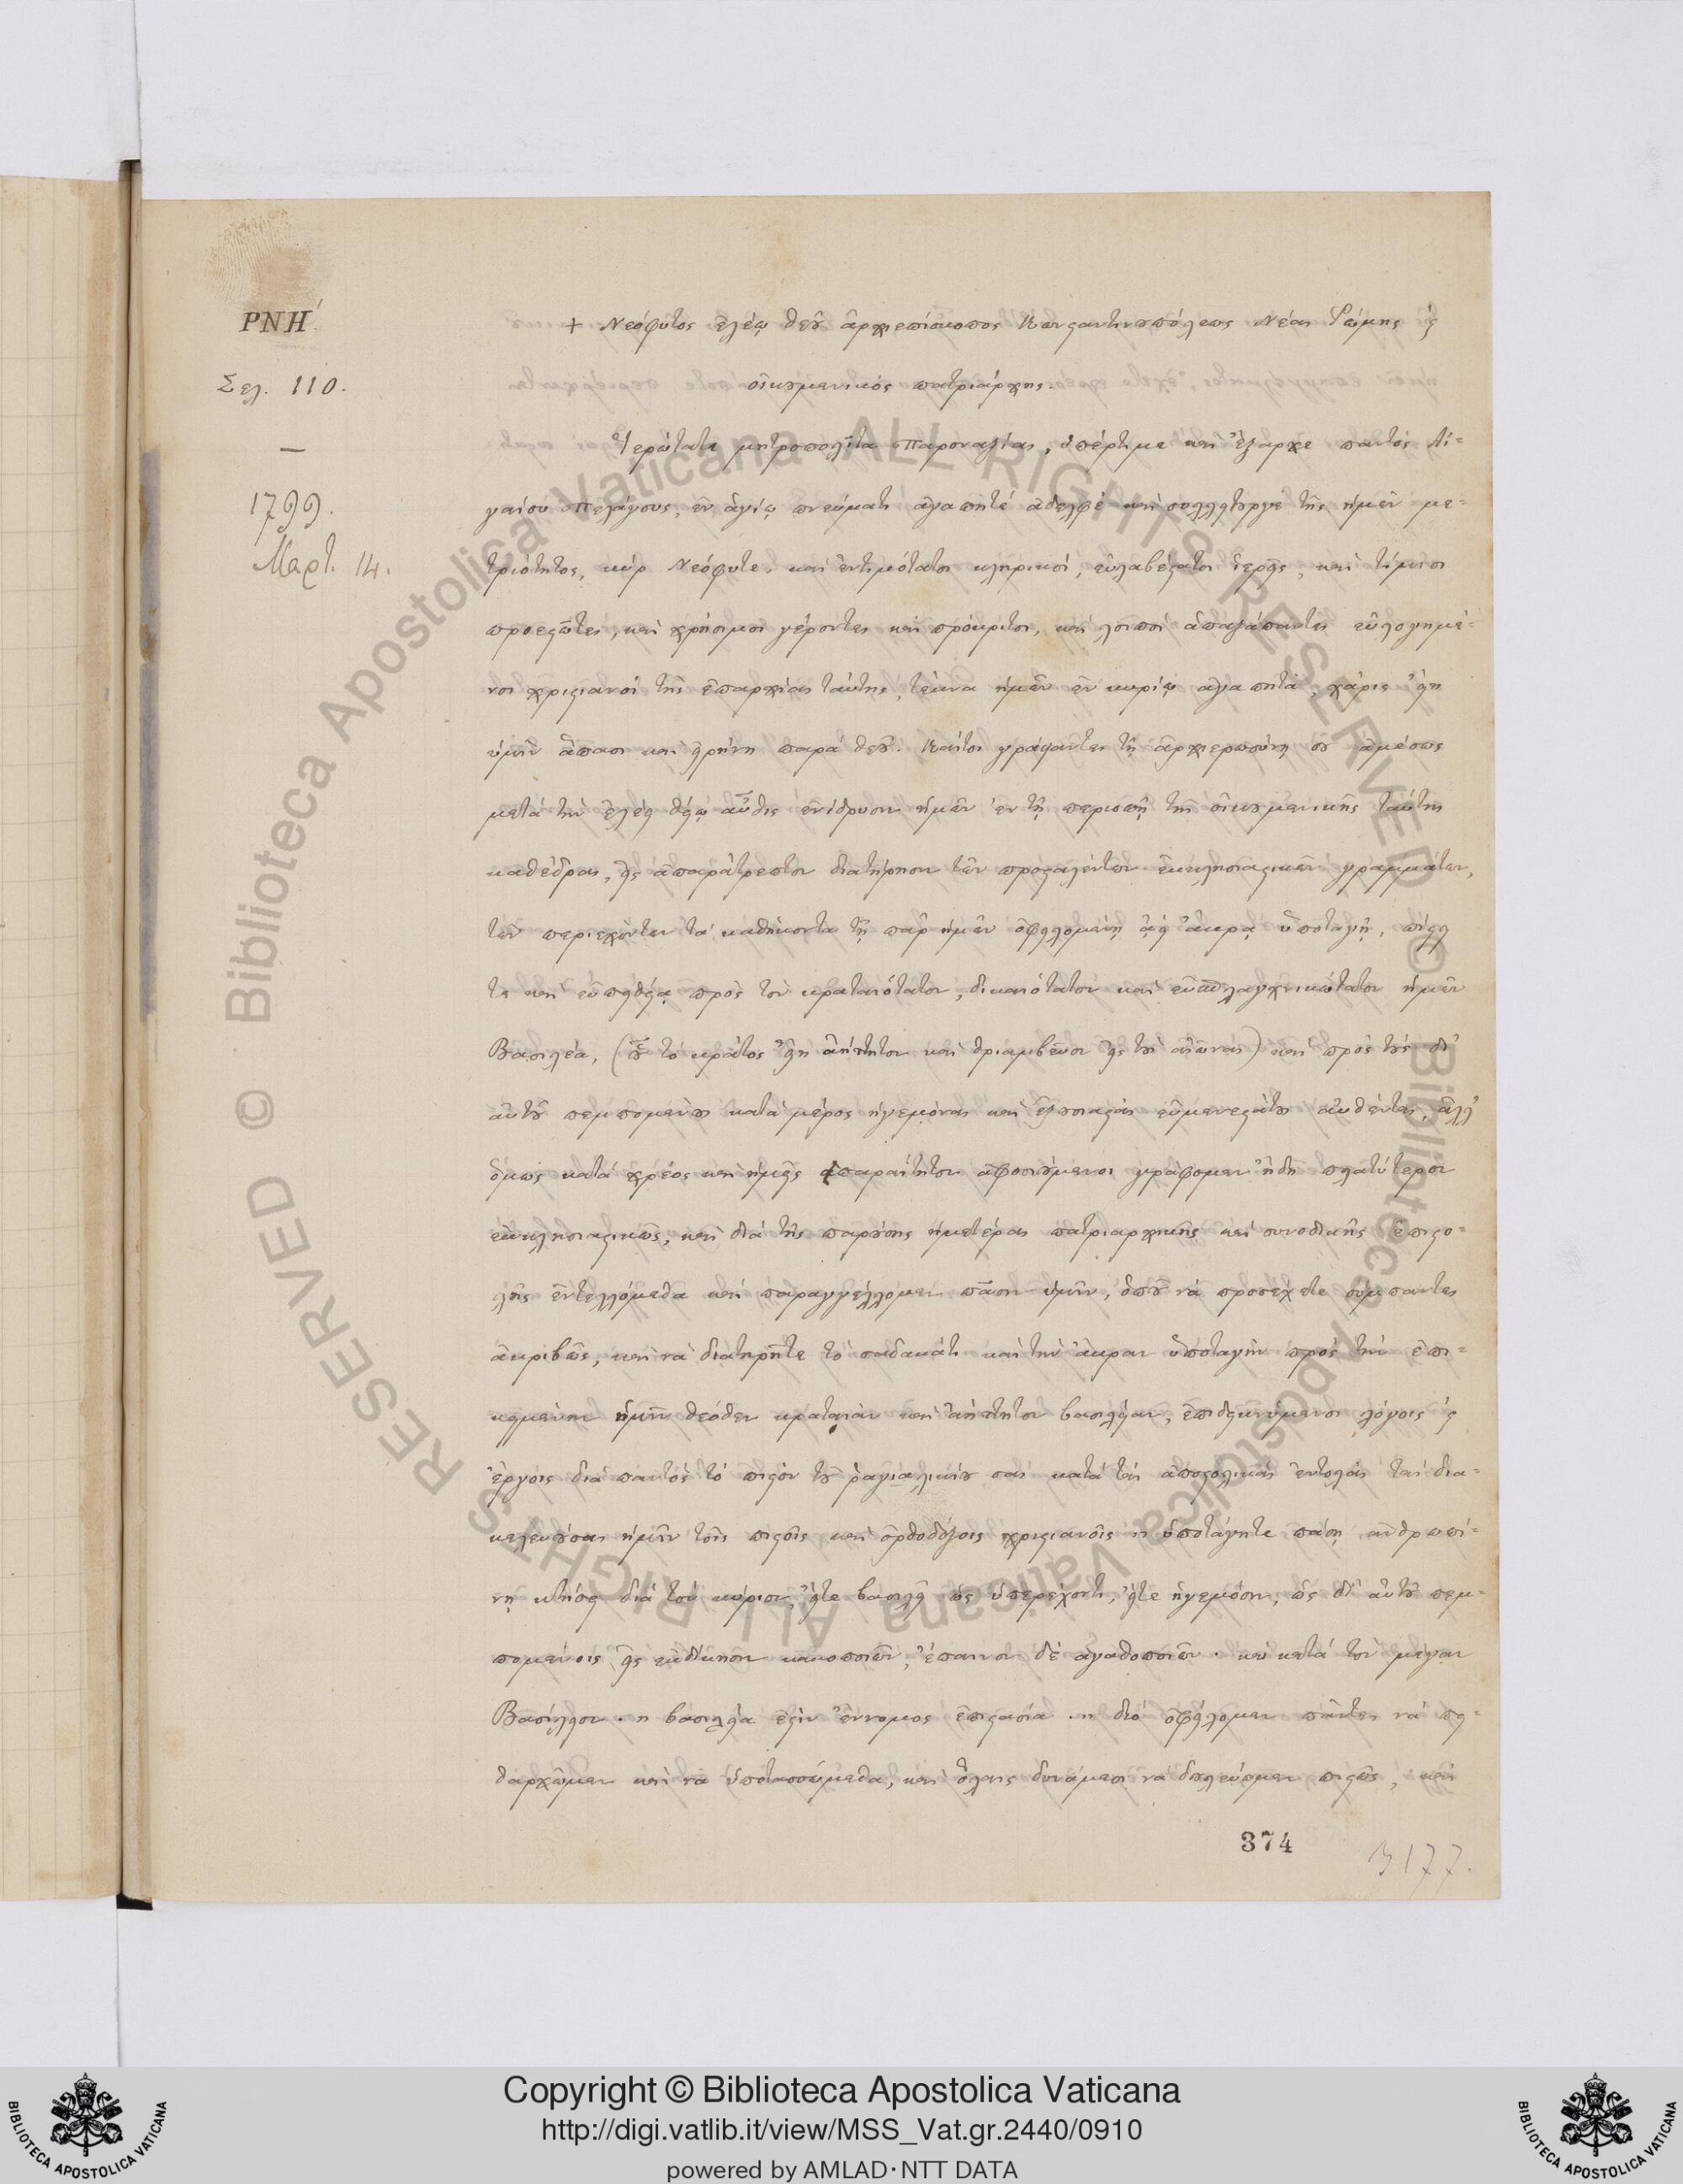 ΡΝΗ΄
Σελ. 110.
1799.
Μαρτ. 14.
+ Νεόφυτος ἐλέῳ θεοῦ ἀρχιεπίσκοπος Κωνσταντινουπόλεως Νέας Ῥώμης καὶ
οἰκουμενικὸς πατριάρχης.
Ἱερώτατε μητροπολῖτα Παροναξίας, ὑπέρτιμε καὶ ἔξαρχε παντὸς Αἰ=
γαίου Πελάγους, ἐν ἁγίῳ πνεύματι ἀγαπητὲ ἀδελφὲ καὶ συλλειτουργὲ τῆς ἡμῶν με=
τριότητος, κὺρ Νεόφυτε, καὶ ἐντιμότατοι κληρικοί, εὐλαβέστατοι ἱερεῖς, καὶ τίμιοι
προεστῶτες, καὶ χρήσιμοι γέροντες καὶ πρόκριτοι, καὶ λοιποὶ ἁπαξάπαντες εὐλογημέ=
νοι χριστιανοὶ τῆς ἐπαρχίας ταύτης, τέκνα ἡμῶν ἐν κυρίῳ ἀγαπητά, χάρις εἴη
ὑμῖν ἅπασι καὶ εἰρήνη παρὰ θεοῦ. Καίτοι γράψαντες τῇ ἀρχιερωσύνῃ σου ἀμέσως
μετὰ τὴν ἐλέει θείῳ αὖθις ἐνίδρυσιν ἡμῶν ἐν τῇ περιωπῇ τῆς οἰκουμενικῆς ταύτης
καθέδρας, εἰς ἀπαράτρεπτον διατήρησιν τῶν προσταλέντων ἐκκλησιαστικῶν γραμμάτων,
τῶν περιεχόντων τὰ καθήκοντα τῇ παρ' ἡμῶν ὀφειλομένῃ ἀεὶ ἄκρᾳ ὑποταγῇ, πίστει
τε καὶ εὐπειθείᾳ πρὸς τὸν κραταιότατον, δικαιότατον καὶ εὐσπλαγχνικώτατον ἡμῶν
Βασιλέα, (οὗ τὸ κράτος εἴη ἀήττητον καὶ θριαμβεῦον εἰς τοὺς αἰῶνας) καὶ πρὸς τοὺς δι'
αὐτοῦ πεμπομένους κατὰ μέρος ἡγεμόνας καὶ ἐξουσιαστὰς εὐμενεστάτους αὐθέντας, ἀλλ'
ὅμως κατὰ χρέος καὶ ἡμεῖς ἀπαραίτητον ἀφοσιούμενοι γράφομεν ἤδη πλατύτερον
ἐκκλησιαστικῶς, καὶ διὰ τῆς παρούσης ἡμετέρας πατριαρχικῆς καὶ συνοδικῆς ἐπιστο=
λῆς ἐντελλόμεθα καὶ παραγγέλλομεν πᾶσιν ὑμῖν, ὁποῦ νὰ προσέχετε σύμπαντες
ἀκριβῶς, καὶ νὰ διατηρῆτε τὸ σαδακάτι καὶ τὴν ἄκραν ὑποταγὴν πρὸς τὴν ἐπι=
κειμένην ἡμῖν θεόθεν κραταιὰν καὶ ἀήττητον βασιλείαν, ἐπιδεικνύμενοι λόγοις καὶ
ἔργοις διὰ παντὸς τὸ πιστὸν τοῦ ῥαγιαλικίου σας κατὰ τὰς ἀποστολικὰς ἐντολὰς τὰς δια=
κελευούσας ἡμῖν τοῖς πιστοῖς καὶ ὀρθοδόξοις χριστιανοῖς " ὑποτάγητε πάσῃ ἀνθρωπί=
νῃ κτίσει διὰ τὸν κύριον, εἴτε βασιλεῖ ὡς ὑπερέχοντι, εἴτε ἡγεμόσιν, ὡς δι' αὐτοῦ πεμ=
πομένοις εἰς ἐκδίκησιν κακοποιῶν, ἔπαινον δὲ ἀγαθοποιῶν. καὶ κατὰ τὸν μέγαν
Βασίλειον. " βασιλεία ἐστὶν ἔννομος ἐπιστασία. " διὸ ὀφείλομεν πάντες νὰ πει=
θαρχῶμεν καὶ νὰ ὑποτασσώμεθα, καὶ ὅλαις δυνάμεσι νὰ δουλεύωμεν πιστῶς, καὶ
374
3177.
Copyright © Biblioteca Apostolica Vaticana
http://digi.vatlib.it/view/MSS_Vat.gr.2440/0910
powered by AMLAD·NTT DATA
BIBLIOTECA APOSTOLICA VATICANA
BIBLIOTECA APOSTOLICA VATICANA
© Biblioteca Apostolica Vaticana ALL RIGHTS RESERVED © Biblioteca Apostolica Vaticana ALL RIGHTS RESERVED